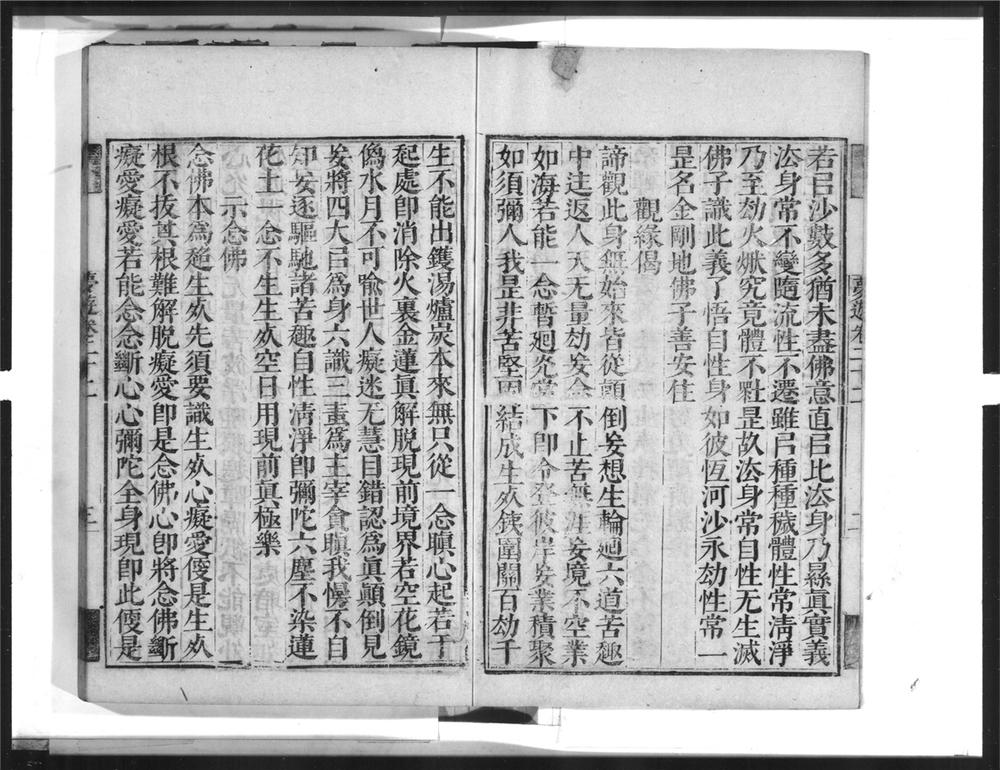 若㠯沙數多猶未盡佛意直㠯比法身乃縣眞實義
法身常不變隨流性不遷雖㠯種種穢體性常淸淨
乃至劫火焮究竟體不㱠昰故法身常自性无生滅
佛子識此義了悟自性身如彼恆河沙永劫性常一
昰名金剛地佛子善安住
觀緣偈
諦觀此身無始來皆從顚倒妄想生輪𢌞六道苦趣
中𨒌返人天无量劫妄念不止苦無涯妄境不空業
如海若能一念暫𢌞光當下卽令登彼岸妄業積聚
如須彌人我昰非苦堅固結成生𣦸鐵圍關百劫千
夢遊卷三十七
二
生不能出鑊湯爐炭本來無只從一念瞋心起若于
起處卽消除火裏金蓮眞解脫現前境界若空花鏡
僞水月不可喩世人癡迷无慧目錯認爲眞顚倒見
妄將四大㠯爲身六識三毒爲主宰貪瞋我慢不自
知妄逐驅馳諸苦趣自性淸淨卽彌陀六塵不染蓮
花土一念不生生𣦸空日用現前眞極樂
示念佛
念佛本爲絕生𣦸先須要識生𣦸心癡愛便是生𣦸
根不拔其根難解脫癡愛卽是念佛心卽將念佛斷
癡愛癡愛若能念念斷心心彌陀全身現卽此便是
夢遊卷三十七
三